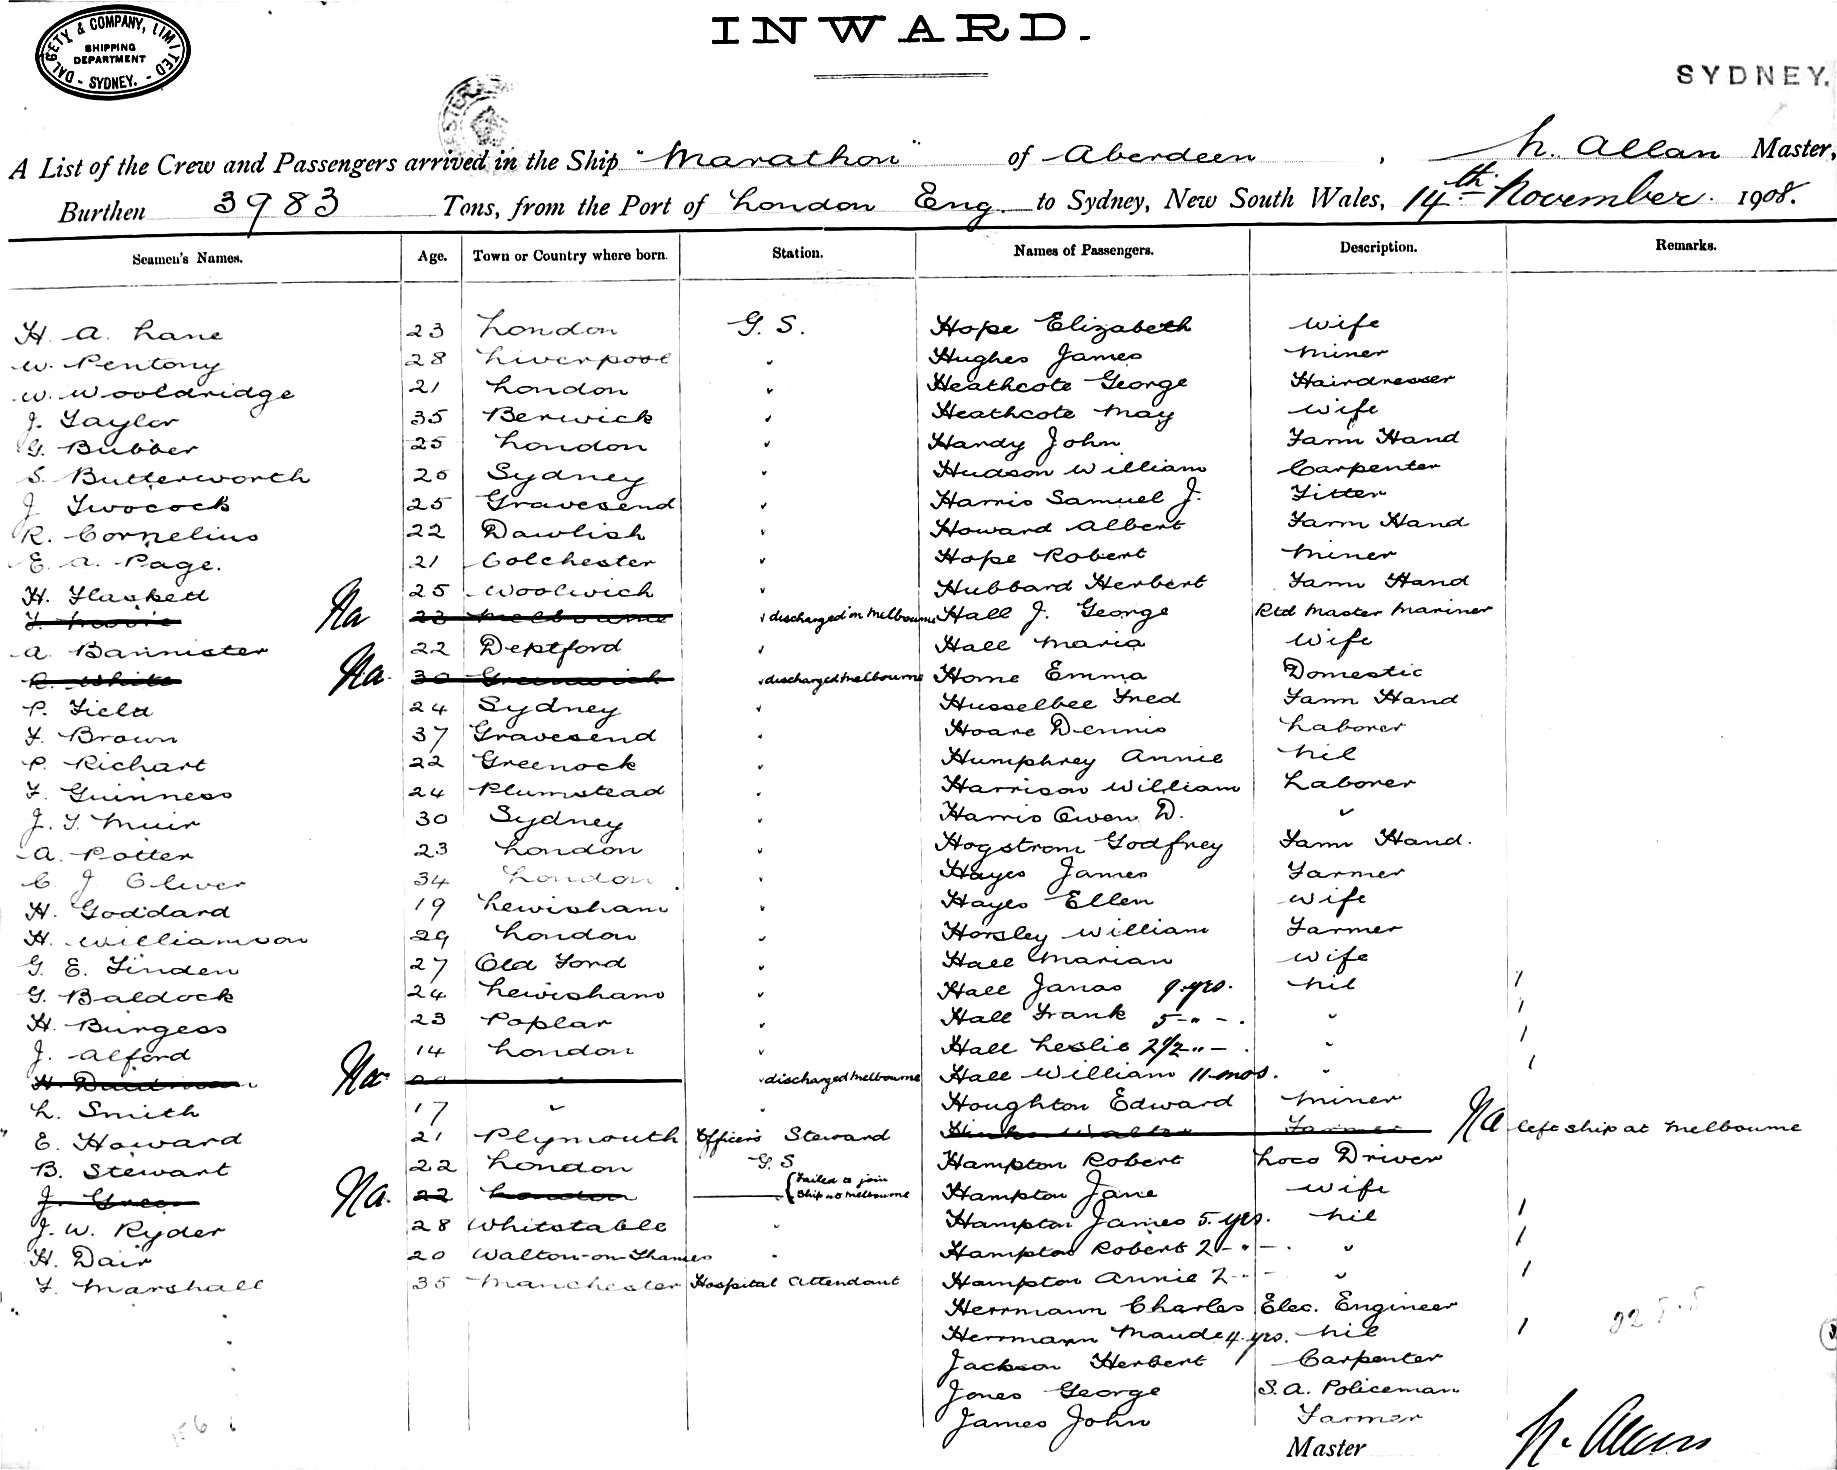 DALGETY & COMPANY, LIMITED
SHIPPING
DEPARTMENT
- SYDNEY. -
INWARD.
SYDNEY.
A List of the Crew and Passengers arrived in the Ship "Marathon" of Aberdeen, N. Allan Master,
Burthen 3983 Tons, from the Port of London Eng. to Sydney, New South Wales, 14th November 1908.
Seamen's Names. Age. Town or Country where born. Station. Names of Passengers. Description. Remarks.
H. A. Lane 23 London G. S. Hope Elizabeth Wife
W. Pentony 28 Liverpool " Hughes James Miner
W. Wooldridge 21 London " Heathcote George Hairdresser
J. Taylor 35 Berwick " Heathcote May Wife
G. Bubber 25 London " Handy John Farm Hand
S. Butterworth 25 Sydney " Hudson William Carpenter
J. Twocock 25 Gravesend " Harris Samuel J. Fitter
R. Cornelius 22 Dawlish " Howard Albert Farm Hand
E. A. Page. 21 Colchester " Hope Robert Miner
H. Flaskett 25 Woolwich " Hubbard Herbert Farm Hand
Na 23 Melbourne " discharged in Melbourne Hall J. George Rtd Master Mariner
A. Bannister 22 Deptford " Hall Maria Wife
R. White Na 30 Greenwich " discharged Melbourne Home Emma Domestic
P. Field 24 Sydney " Husselbee Fred Farm Hand
F. Brown 37 Gravesend " Hoare Dennis Laborer
P. Richart 22 Greenock " Humphrey Annie Nil
F. Guinness 24 Plumstead " Harrison William Laborer
J. F. Muir 30 Sydney " Harris Owen D. "
A. Potter 23 London " Hogstrom Godfrey Farm Hand.
C. J. Oliver 34 London " Hayes James Farmer
H. Goddard 19 Lewisham " Hayes Ellen Wife
H. Williamson 29 London " Horsley William Farmer
G. E. Finden 27 Old Ford " Hall Marian Wife
G. Baldock 24 Lewisham " Hall Janas 9 yrs. Nil 1
H. Burgess 23 Poplar " Hall Frank 5 - " - . " 1
J. Alford 14 London " Hall Leslie 2 1/2 " - . " 1
H. Na " " discharged Melbourne Hall William 11 mos. " 1
L. Smith 17 " " Houghton Edward Miner
E. Howard 21 Plymouth Officers Steward Walter Farmer Na left ship at Melbourne
B. Stewart 22 London G. S Hampton Robert Loco Driver
J. Green Na. 22 London Failed to join Ship at Melbourne Hampton Jane Wife
J. W. Ryder 28 Whitstable " Hampton James 5 yrs. Nil 1
H. Dair 20 Walton-on-Thames " Hampton Robert 2 - " - . " 1
F. Marshall 35 Manchester Hospital Attendant Hampton Annie 2 - " - " 1
Herrmann Charles Elec. Engineer
Herrmann Maude 4 yrs. Nil 1
Jackson Herbert Carpenter
Jones George S.A. Policeman
James John Farmer
Master N. Allan